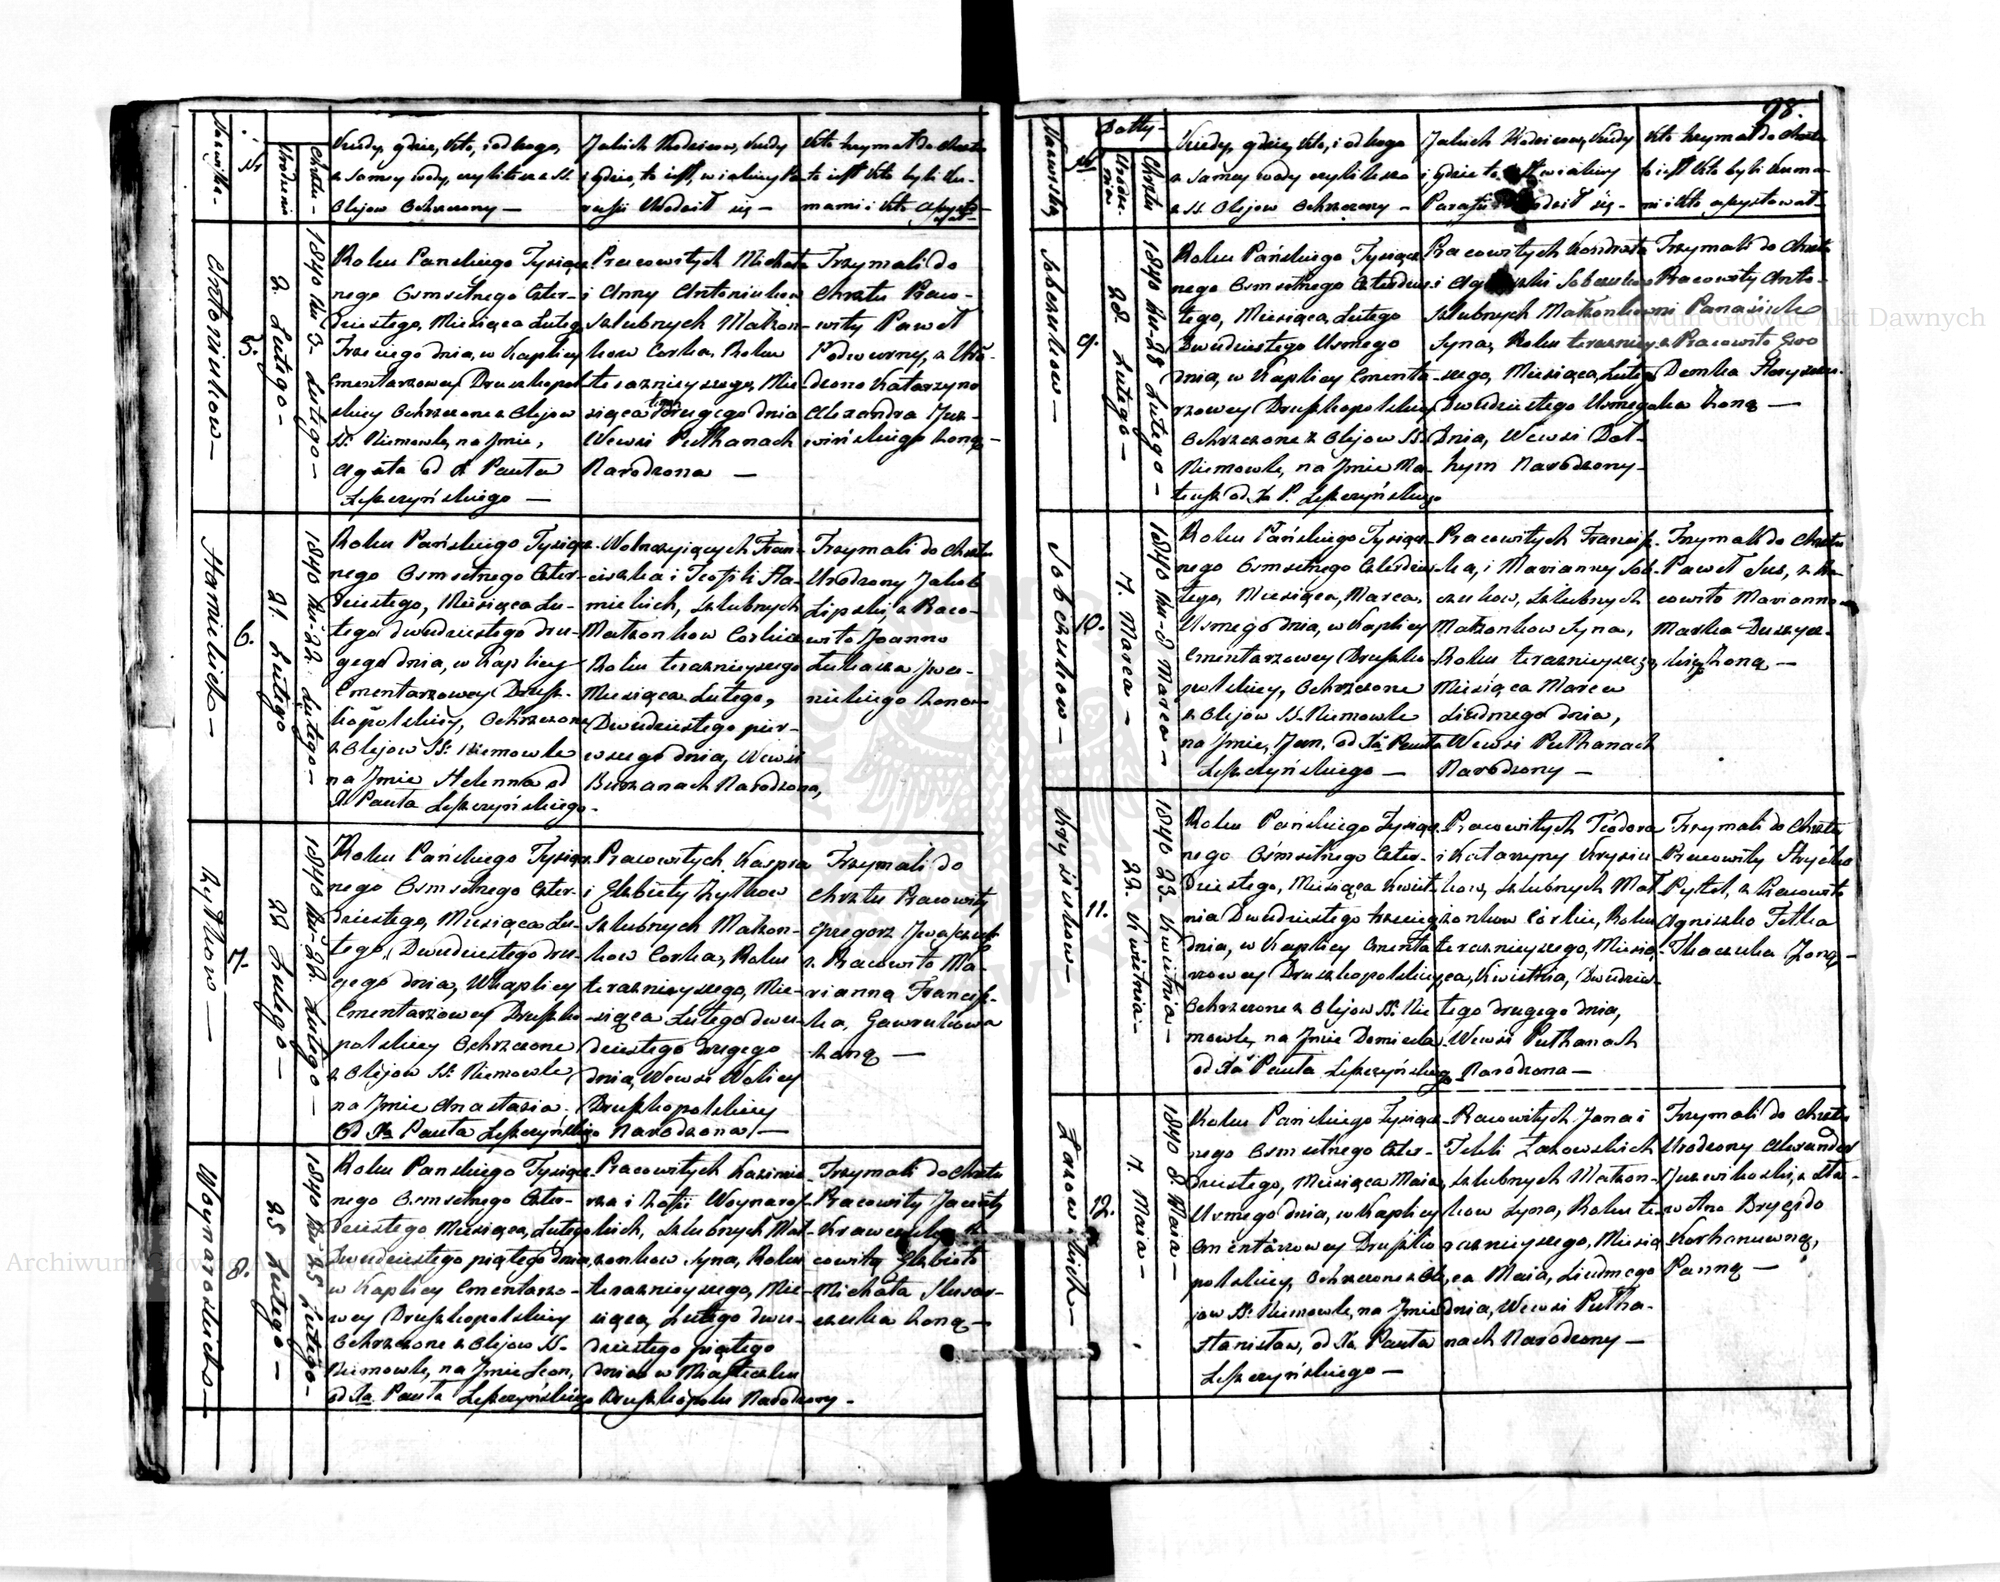 98.
Nazwiska
Nr
Urodzenia
Chrztu
Kiedy, gdzie, kto, i od kogo,
z samey wody, czyli też z SS.
Olejow Ochrzczony —
Jakich Rodzicow, kiedy
i gdzie, to iest, w iakiey Pa-
rafii Urodził się —
Kto trzymał do Chrztu
to iest kto byli Ku-
mami i kto assysto-
Antoniukow —
5.
2. Lutego —
1840 Ru 3. Lutego —
Roku Panskiego Tysiącz-
nego Osmsetnego Czter-
dziestego, Miesiąca Lutego
Trzeciego dnia, w Kaplicy
Cmentarzowey Druszkopol-
skiey Ochrzczone z Olejow
SS. Niemowle, na Jmie,
Agata od X Pawła
Leszczyńskiego —
Pracowitych Michała
i Anny Antoniukow
szlubnych Małżon-
kow Corka, Roku
terazniejszego, Mie-
siąca tegoż Drugego dnia
Wewsi Pułhanach
Narodzona —
Trzymali do
Chrztu Praco-
wity Paweł
Podwurny, z Uro-
dzono Katarzyno
Alexandra Jusz-
wińskiego żoną —
Hamulickich —
6.
21. Lutego
1840 Ru 22. Lutego —
Roku Pańskiego Tysiącz-
nego Osmsetnego Czter-
dziestego, Miesiąca Lu-
tego dwudziestego dru-
gego dnia, w Kaplicy
Cmentarzowey Drusz-
kopolskiey, Ochrzczone
z Olejow SS. Niemowle
na Jmie Helenna od
X Pawła Leszczyńskiego.
Wolnożyjących Fran-
ciszka i Teofili Ha-
mielich, szlubnych
Małżonkow Corka
Roku terazniejszego
Miesiąca Lutego,
Dwudziestego pier-
wszego dnia, Wewsi
Borzanach Narodzona,
Trzymali do Chrztu
Urodzony Jakub
Lipski, z Praco-
wito Joanno
Łukasza Jwa-
nickiego żono —
Żytkow —
7.
22 Lutego —
1840 Ru 22. Lutego —
Roku Pańskiego Tysiącz-
nego Osmsetnego Czter-
dziestego, Miesiąca Lu-
tego, Dwudziestego dru-
gego dnia, Wkaplicy
Cmentarzowey Druszko-
polskiey Ochrzczone
z Olejow SS. Niemowle,
na Jmie Anastazia,
Od Xa Pawła Leszczyńskiego
Pracowitych Kaspra
i Elżbiety Żytkow
szlubnych Małżon-
kow Corka, Roku
terazniejszego, Mie-
siąca Lutego dwu-
dziestego drugego
dnia, Wewsi Wolicy
Druszkopolskiey
Narodzona —
Trzymali do
Chrztu Pracowity
Grzegorz Jwaszczuk
z Pracowito Ma-
rianną Francisz-
ka Gawrukowa
żoną —
Woynarowskich —
8.
25 Lutego —
1840 Ru 25 Lutego —
Roku Panskiego Tysiącz-
nego Osmsetnego Czter-
dziestego Miesiąca, Lutego
Dwudziestego piątego dnia,
w Kaplicy Cmentarzo-
wey Druszkopolskiey
Ochrzczone z Olejow SS.
Niemowle, na Jmie Leon,
od Xa Pawła Leszczyńskiego
Pracowitych Kazimie-
rza i Zofii Woynarow-
skich, szlubnych Mał-
żonkow Syna, Roku
terazniejszego, Mie-
siąca, Lutego dwu-
dziestego piątego
dnia w Miasteczku
Druszkopolu Narodzony —
Trzymali do Chrztu
Pracowity Jacenty
Krawczuk z
cowitą Elżbieto
Michała Slusar-
czuka żoną —
Nazwiska
Nr
Datty
Urodze-
nia
Chrztu
Kiedy, gdzie, kto, i od kogo
z samey wody czyli też
z SS. Olejow Ochrzczony —
Jakich Rodzicow, kiedy
i gdzie to iest w iakiey
Parafii Urodził się —
Kto trzymał do Chrztu
to iest kto byli Kuma-
mi i kto assystował
Sobczukow —
9.
28. Lutego —
1840 Ru 28 Lutego —
Roku Pańskiego Tysiącz-
nego Osmsetnego Czterdzies-
tego, Miesiąca, Lutego
Dwudziestego Usmego
dnia, w Kaplicy Cmenta-
rzowey Druszkopolskiey
Ochrzczone z Olejow SS.
Niemowle, na Jmie Ma-
teusz od Xa P. Leszczyńskiego
Pracowitych Kondrata
i Agnieszki Sobczukow
szlubnych Małżonkow
Syna, Roku terazniey-
szego, Miesiąca, Lutego
Dwudziestego Usmego
Dnia, Wewsi Doł-
hym Narodzony —
Trzymali do Chrztu
Pracowity Anto-
ni Panasiuk
z Pracowito Ewo
Demka
żoną —
Sobczukow —
10.
7. Marca —
1840 Ru 8 Marca —
Roku Pańskiego Tysiącz-
nego Osmsetnego Czterdzies-
tego, Miesiąca, Marca,
Usmego dnia, w Kaplicy
Cmentarzowey Druszko-
polskiey, Ochrzczone
z Olejow SS. Niemowle
na Jmie, Jan, od Xa Pawła
Leszczyńskiego —
Pracowitych Francisz-
ka, i Marianny Sob-
czukow, szlubnych
Małżonkow Syna,
Roku terazniejszego,
Miesiąca Marca
Siudmego dnia,
Wewsi Pułhanach
Narodzony —
Trzymali do Chrztu
Paweł Sus, z Pra-
cowito Marianno
Marka
żoną —
Krysiukow —
11.
22. Kwietnia —
1840 23. Kwietnia —
Roku Pańskiego Tysiącz-
nego Ośmsetnego Czter-
dziestego, Miesiąca Kwiet-
nia Dwudziestego trzeciego
dnia, w Kaplicy Cmenta-
rzowey Druszkopolskiey
Ochrzczone z Olejow SS. Nie-
mowle, na Jmie Domicela
od Xa Pawła Leszczyńskiego
Pracowitych Teodora
i Katarzyny Krysiu-
kow, szlubnych Mał-
żonkow Córka, Roku
terazniejszego, Miesią-
ca, Kwietnia, Dwudzies-
tego drugego dnia,
Wewsi Pułhanach
Narodzona —
Trzymali do Chrztu
Pracowity Hryćko
Pytel, z Pracowito
Agniszko Fetka
Tkaczuka Żoną —
Łazowskich —
12.
7. Maia —
1840 8. Maia —
Roku Pańskiego Tysiącz-
nego Osmsetnego Czter-
dziestego, Miesiąca Maia,
Usmego dnia, w Kaplicy
Cmentarzowey Druszko-
polskiey, Ochrzczone z Ole-
jow SS. Niemowle, na Jmie
Stanisław, od Xa Pawła
Leszczyńskiego —
Pracowitych Jana i
Tekli Łazowskich
szlubnych Małżon-
kow Syna, Roku te-
razniejszego, Miesią-
ca Maia, Siudmego
dnia, Wewsi Pułha-
nach Narodzony —
Trzymali do Chrztu
Urodzony Alexander
Juzwikoski, z Sla-
wetno Brygido
Korhanuwną,
Panną —
Archiwum Główne Akt Dawnych
Archiwum Główne Akt Dawnych